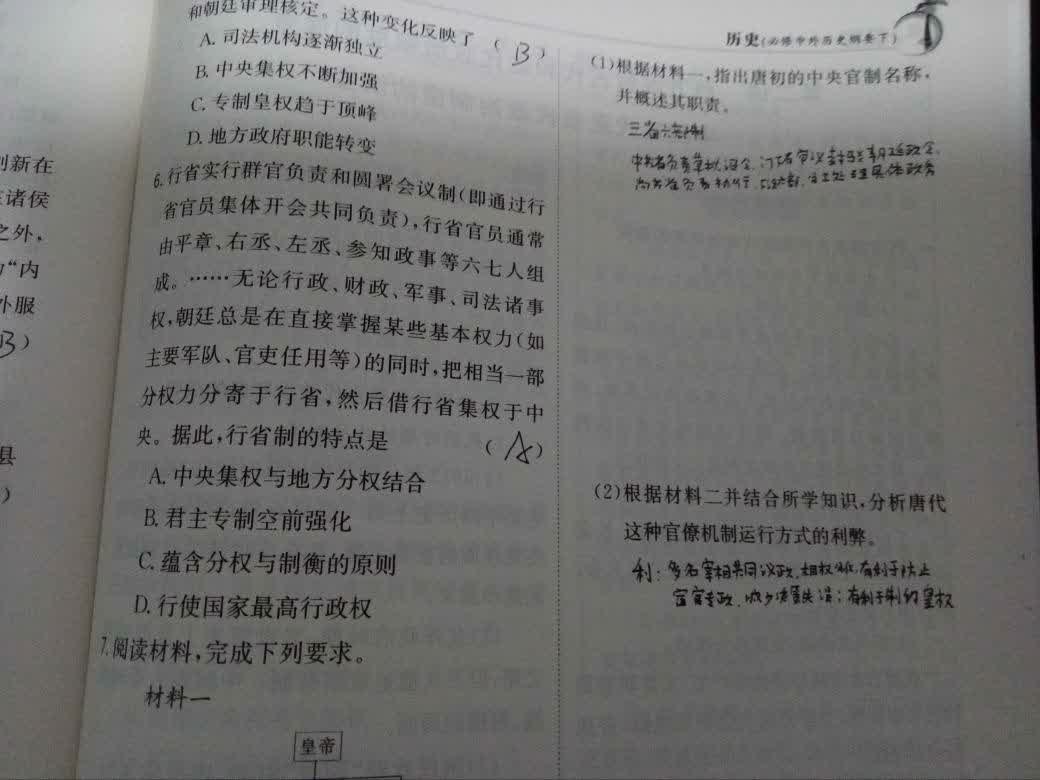 和朝廷审理核定。这种变化反映了 ( B )
A. 司法机构逐渐独立
B. 中央集权不断加强
C. 专制皇权趋于顶峰
D. 地方政府职能转变
6. 行省实行群官负责和圆署会议制(即通过行
省官员集体开会共同负责),行省官员通常
由平章、右丞、左丞、参知政事等六七人组
成。……无论行政、财政、军事、司法诸事
权,朝廷总是在直接掌握某些基本权力(如
主要军队、官吏任用等)的同时,把相当一部
分权力分寄于行省,然后借行省集权于中
央。据此,行省制的特点是 ( A )
A. 中央集权与地方分权结合
B. 君主专制空前强化
C. 蕴含分权与制衡的原则
D. 行使国家最高行政权
7. 阅读材料,完成下列要求。
材料一
皇帝
新在
诸侯
之外,
“内
外服
B)
县
)
历史(必修中外历史纲要下)
(1)根据材料一,指出唐初的中央官制名称,
并概述其职责。
三省六部制
中书省负责草拟诏令,门下省审议封驳朝廷政令,
尚书省负责执行,六部
具体政务
(2)根据材料二并结合所学知识,分析唐代
这种官僚机制运行方式的利弊。
利:多名宰相共同议政,相权 有利于防止
专政,减少决策失误;有利于制约皇权